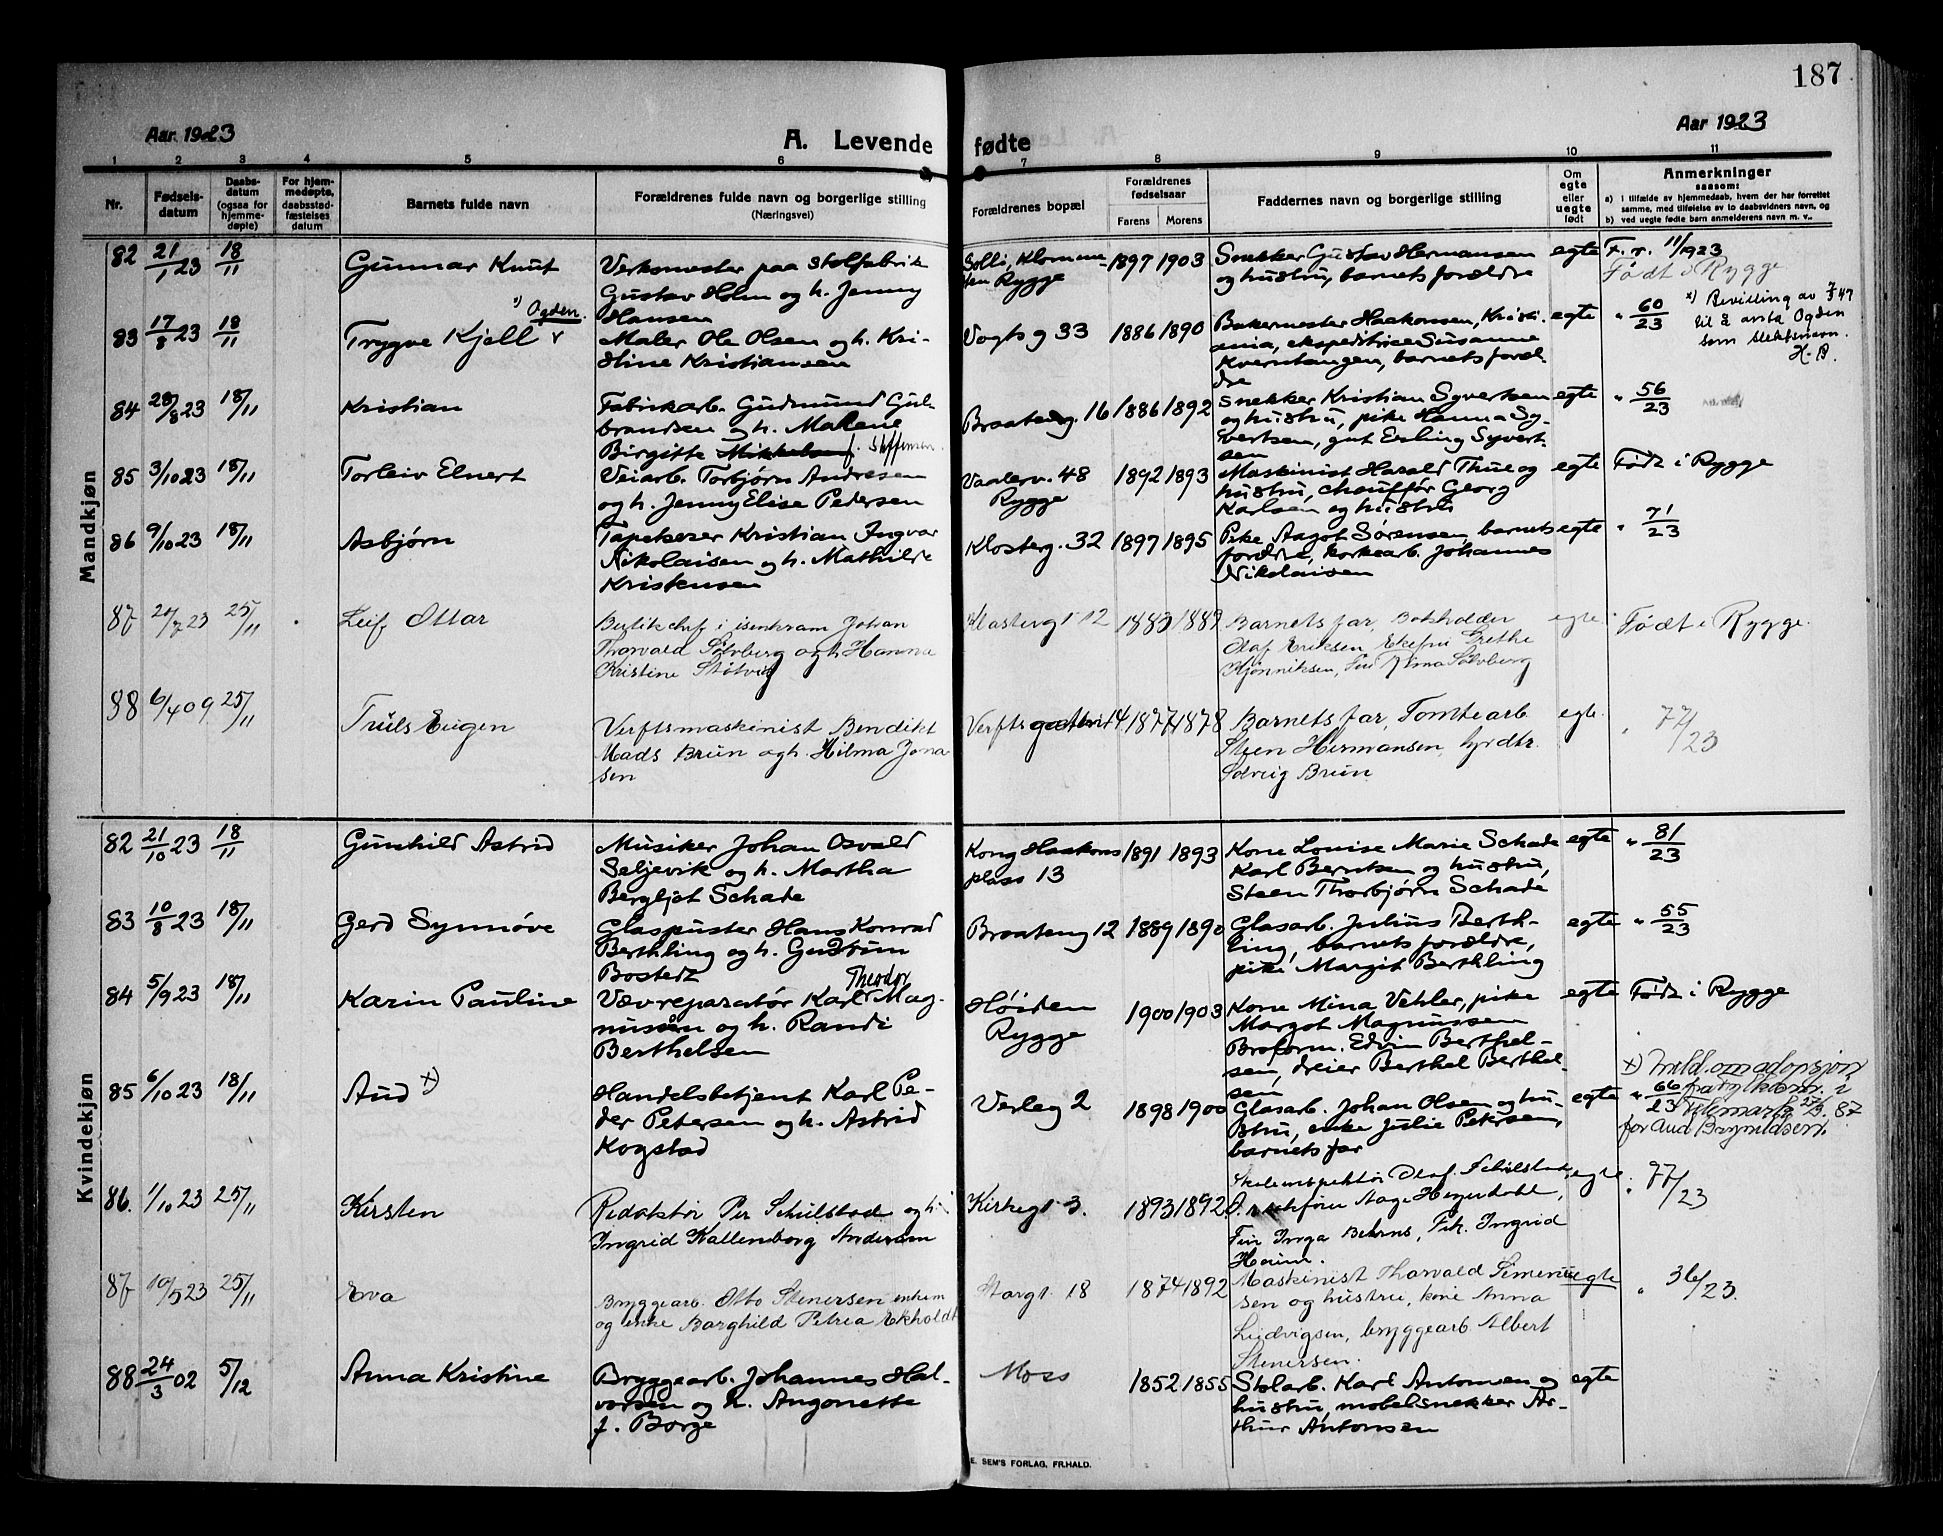 187
Aar 1923
A. Levende fødte
Aar 1923
1 2 3 4 5 6 7 8 9 10 11
Nr.
Fødselsdatum
Daabsdatum (ogsaa for hjemmedøpte)
For hjemmedøpte, daabsstadfæstelses datum
Barnets fulde navn
Forældrenes fulde navn og borgerlige stilling
(Næringsvei)
Forældrenes bopæl
Forældrenes fødselsaar
Farens Morens
Faddernes navn og borgerlige stilling
Om egte eller uegte født
Anmerkninger
saasom:
a) i tilfælde av hjemmedaab, hvem der har forrettet
samme, med tilføielse av to daabsvidners navn, og
b) ved uegte fødte barn anmelderens navn m. v..
Mandkjøn
82 21/1 23 18/11 Gunnar Knut
Verksmester paa stolfabrik
Gustav Holm og h. Jenny
Hansen
Rygge
1897 1903
Snekker Gustav Hermansen
og hustru, barnets forældre
egte
F. r. 11/1923
Født i Rygge
83 17/8 23 18/11 Trygve Kjell
1) Ogden.
Maler Ole Olsen og h. Kri-
stine Kristiansen
Vogts g 33
1886 1890
Bakermester Haakonsen, Kristi-
ania, ekspeditrice Susanne
Kverntangen, barnets foræl-
dre
egte
" 60/23
x) Bevilling av 7/3 47
til å anta Ogden
som slektsnavn.
H. B.
84 28/8 23 18/11 Kristian
Fabrikarb. Gudmund Gul-
brandsen og h. Malene
Birgitte Mikkelsen f. Steffensen.
Braateng. 16
1886 1892
Snekker Kristian Syvertsen
og hustru, pike Hanna Sy-
vertsen, gut Erling Syvert-
sen
egte
" 56/23
85 3/10 23 18/11 Torleiv Elnert
Veiarb. Torbjørn Andresen
og h. Jenny Elise Pedersen
Vaalerv. 48
Rygge
1892 1893
Maskinist Harald Thue og
hustru, chauffør Georg
Karlsen og hustru
egte
Født i Rygge
86 9/10 23 18/11 Asbjørn
Tapetserer Kristian Ingvar
Nikolaisen og h. Mathilde
Kristensen
Klosterg. 32
1897 1895
Pike Aagot Sørensen, barnets
forældre, korkearb. Johannes
Nikolaisen
egte
" 71/23
87 23 25/11 Leif Ottar
i isenkram Johan
Thorvald Sølvberg og h Hanna
Kristine
Klostergt 12
1883 1889
Barnets far, Bokholder
Olaf Eriksen, Grethe
Alma Sølvberg
egte
Født i Rygge.
88 6/4 09 25/11 Truls Eugen
Verftsmaskinist Bendikt
Mads Brun og h. Hilma Jona-
sen
14
1877 1878
Barnets far, Tomtearb
Steen Hermansen,
Solveig Brun.
egte.
" 77/23
Kvindekjøn
82 21/10 23 18/11 Gunhild Astrid
Musiker Johan Osvald
Seljevik og h. Martha
Bergljot Schade
Kong Haakons
plass 13
1891 1893
Kone Louise Marie Schade
Karl Berntsen og hustru,
Steen Thorbjørn Schade
egte
" 81/23
83 10/8 23 18/11 Gerd Synnøve
Glaspuster Hans Konrad
Berthling og h. Gudrun
Bostedt
Braateng 12
1889 1890
Glasarb. Julius Berth-
ling, barnets forældre,
pike Margit Berthling
egte
" 55/23
84 5/9 23 18/11 Karin Pauline
Theodor
Vævreparatør Karl Mag-
nussen og h. Randi
Berthelsen
Høiden
Rygge
1900 1903
Kone Mina Vehler, pike
Margot Magnussen
Broform. Edvin Berthel-
sen, dreier Berthel Berthel-
sen
egte
Født i Rygge
85 6/10 23 18/11 Aud x)
Handelsbetjent Karl Pe-
der Petersen og h. Astrid
Kogstad
Verleg 2
1898 1900
Glasarb. Johan Olsen og hu-
stru, enke Julie Petersen,
barnets far
egte
" 66/23
x) Meld. om adopsjon
fra fylkesm. i
Telemark 87
for Aud Brynildsen.
86. 1/10 23 25/11 Kirsten
Redaktør Per Schulstad og h.
Ingrid Kallenborg Andersen
Kirkegt 3.
1893 1892
Skoleinspektør Olaf Schulstad,
Aage Heyerdahl,
Fru Inga Behrens, Frk. Ingrid
egte
" 77/23
87 10/5 23 25/11 Eva
Bryggearb. Otto Stenersen enkem
og enke Borghild Petrea Ekholdt
Storgt. 18
1874 1892
Maskinist Thorvald Simen-
sen og hustru, kone Anna
Ludvigsen, bryggearb Albert
Stenersen.
egte
" 36/23.
88 24/3 02 5/12 Anna Kristine
Bryggearb. Johannes Hal-
vorsen og h. Angonette
f. Borge
Moss
1852 1855
Stolarb. Karl Antonsen og
hustru, møbelsnekker Ar-
thur Antonsen
egte
E. SEM'S FORLAG, FR.HALD.